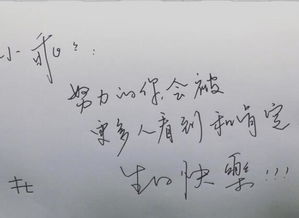 小乖々：
努力的你，会被
更多人看到和肯定
生日快樂!!!